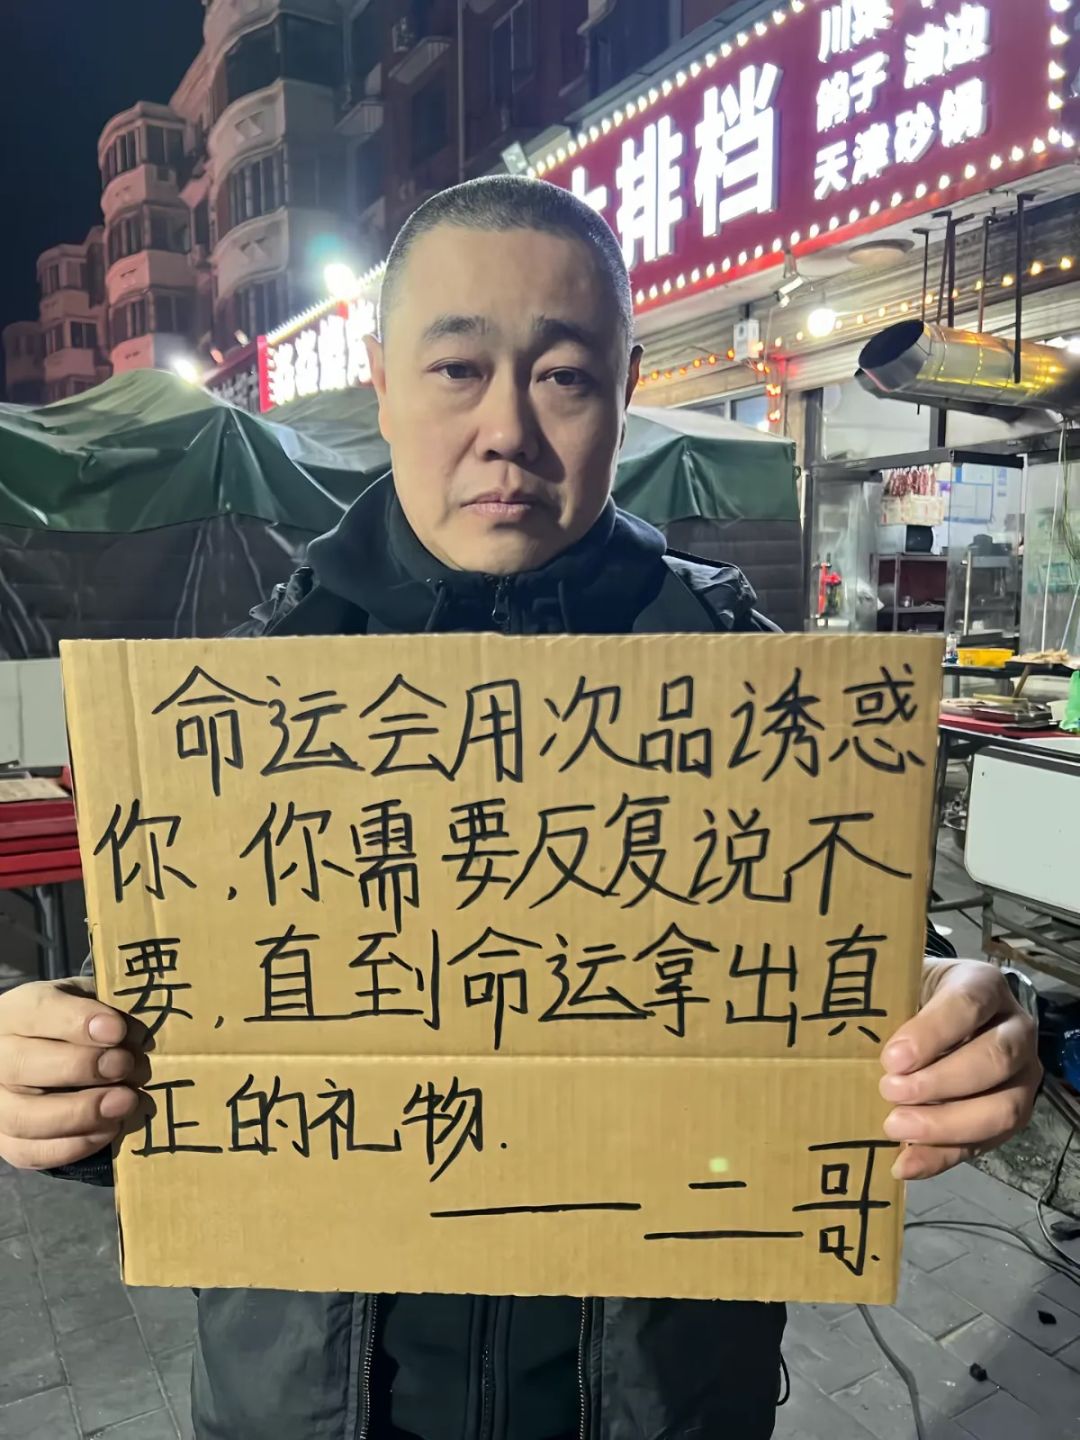 川菜
鸽子 溜边
天津砂锅
大排档
命运会用次品诱惑
你,你需要反复说不
要,直到命运拿出真
正的礼物.
——二哥.